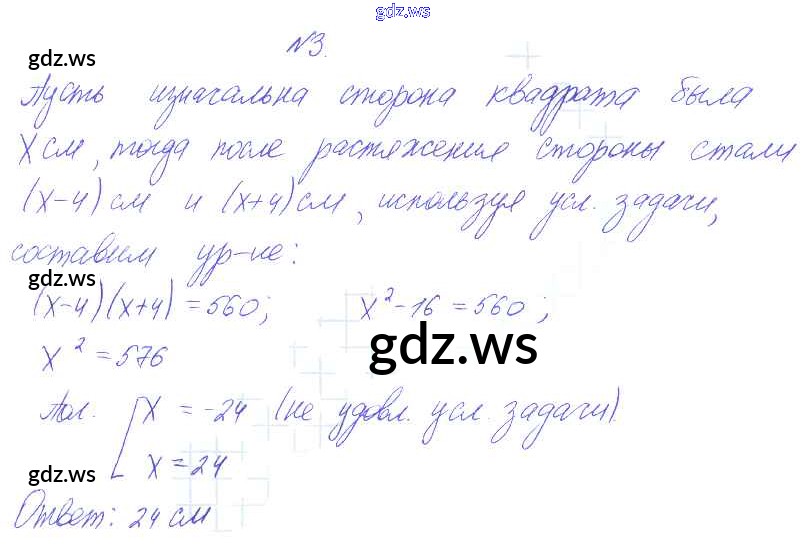 gdz.ws
№3.
gdz.ws
Пусть изначальна сторона квадрата была
х см, тогда после растяжения стороны стали
(х-4) см и (х+4) см, используя усл. задачи,
составим ур-ие:
gdz.ws
(х-4)(х+4) = 560; х² - 16 = 560;
gdz.ws
х² = 576
Пол. [ х = -24 (не удовл. усл. задачи).
х = 24
gdz.ws
Ответ: 24 см